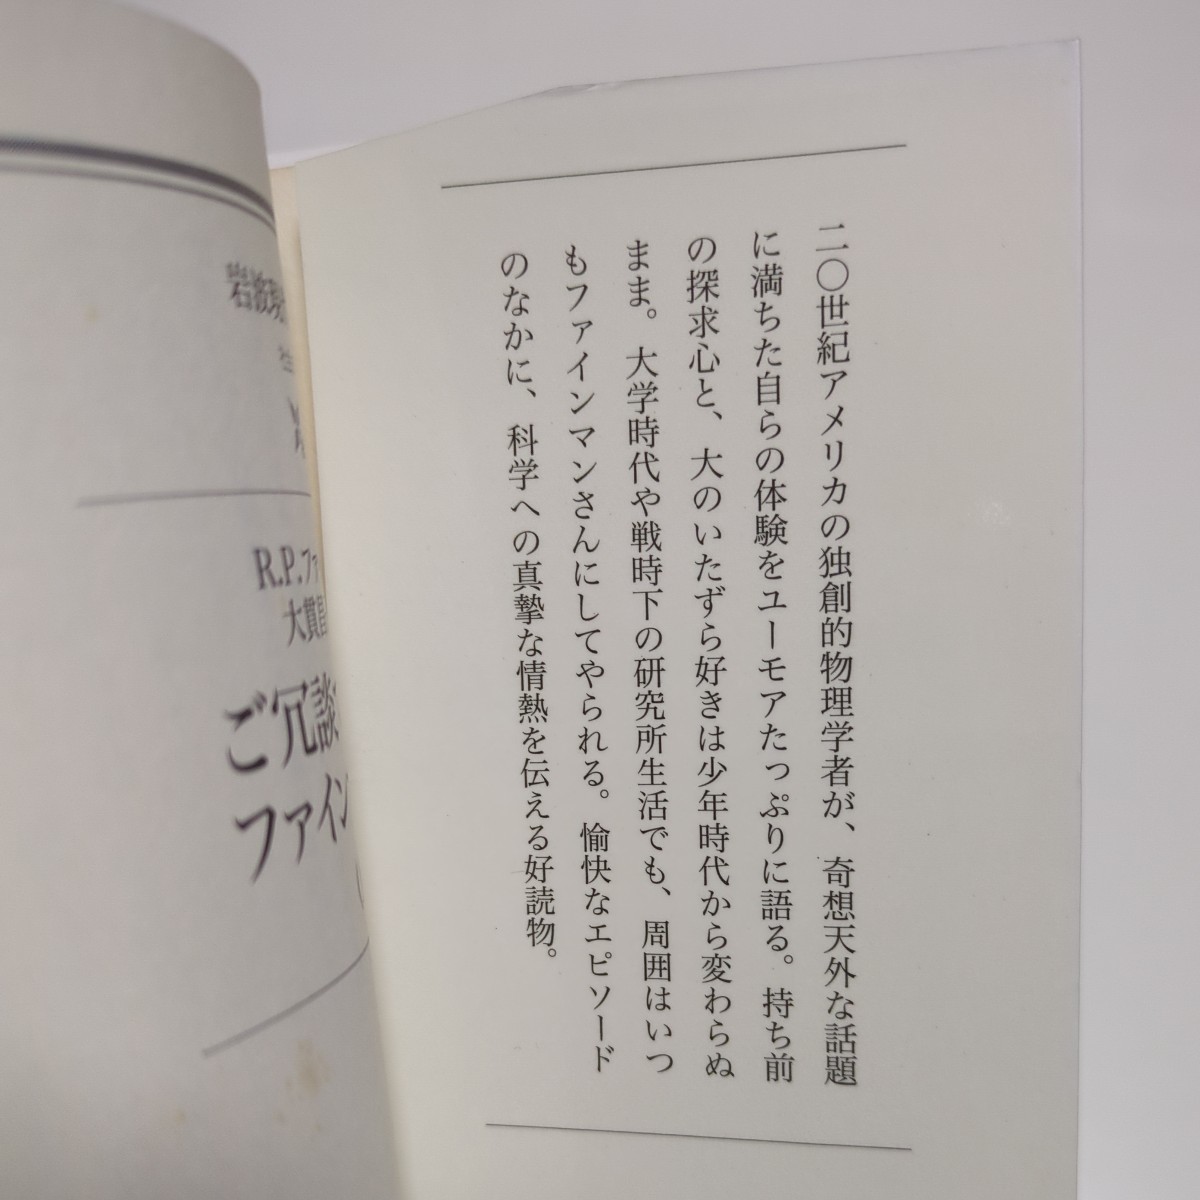 二〇世紀アメリカの独創的物理学者が、奇想天外な話題
に満ちた自らの体験をユーモアたっぷりに語る。持ち前
の探求心と、大のいたずら好きは少年時代から変わらぬ
まま。大学時代や戦時下の研究所生活でも、周囲はいつ
もファインマンさんにしてやられる。愉快なエピソード
のなかに、科学への真摯な情熱を伝える好読物。
岩波現
R.P.ファ
大貫昌
ご冗談
ファイン